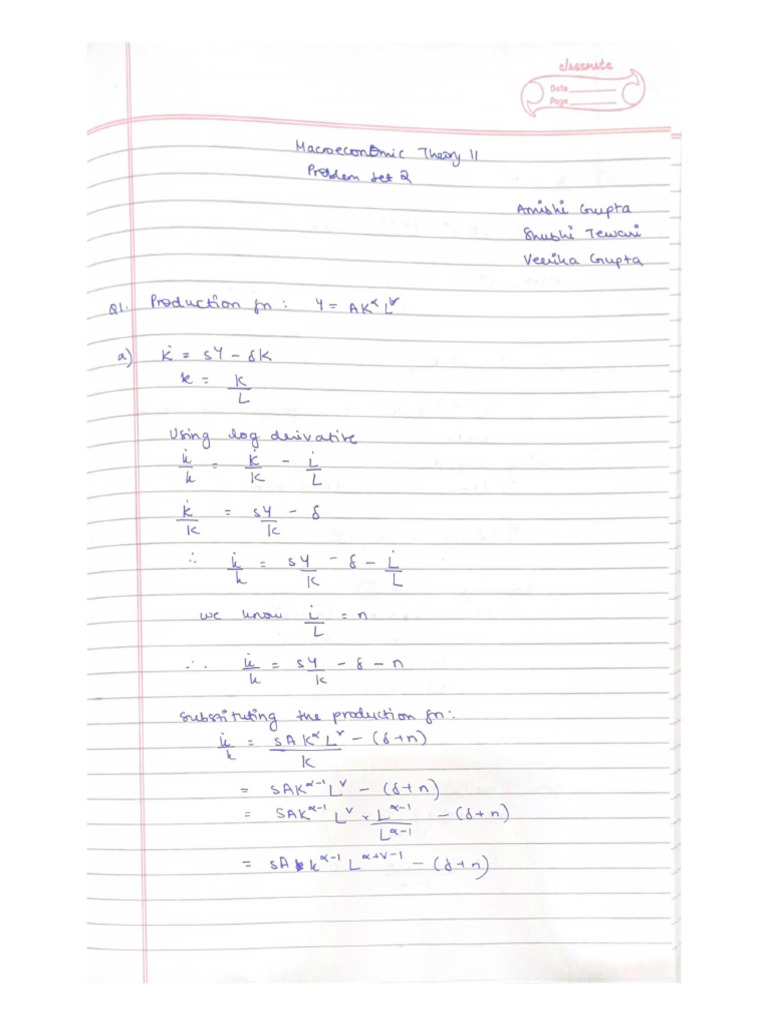 classmate
Date
Page
Macroeconomic Theory II
Problem Set 2
Amishi Gupta
Shubhi Tewari
Veerika Gupta
Q1. Production fn : Y = AK^α L^v
a) K̇ = sY - δK
k = K/L
Using log derivative
k̇/k = K̇/K - L̇/L
K̇/K = sY/K - δ
∴ k̇/k = sY/K - δ - L̇/L
we know L̇/L = n
∴ k̇/k = sY/K - δ - n
Substituting the production fn:
k̇/k = sAK^α L^v/K - (δ+n)
= sAK^α-1 L^v - (δ+n)
= SAK^α-1 L^v × L^α-1/L^α-1 - (δ+n)
= sA k^α-1 L^α+v-1 - (δ+n)